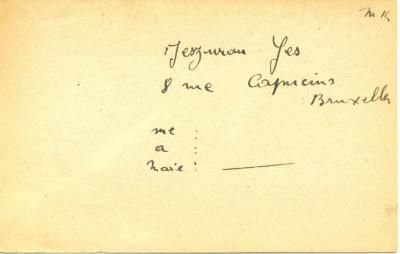 M K
Jeszuran Jes
8 rue Capucins
Bruxelles
me :
a :
Marié : ———